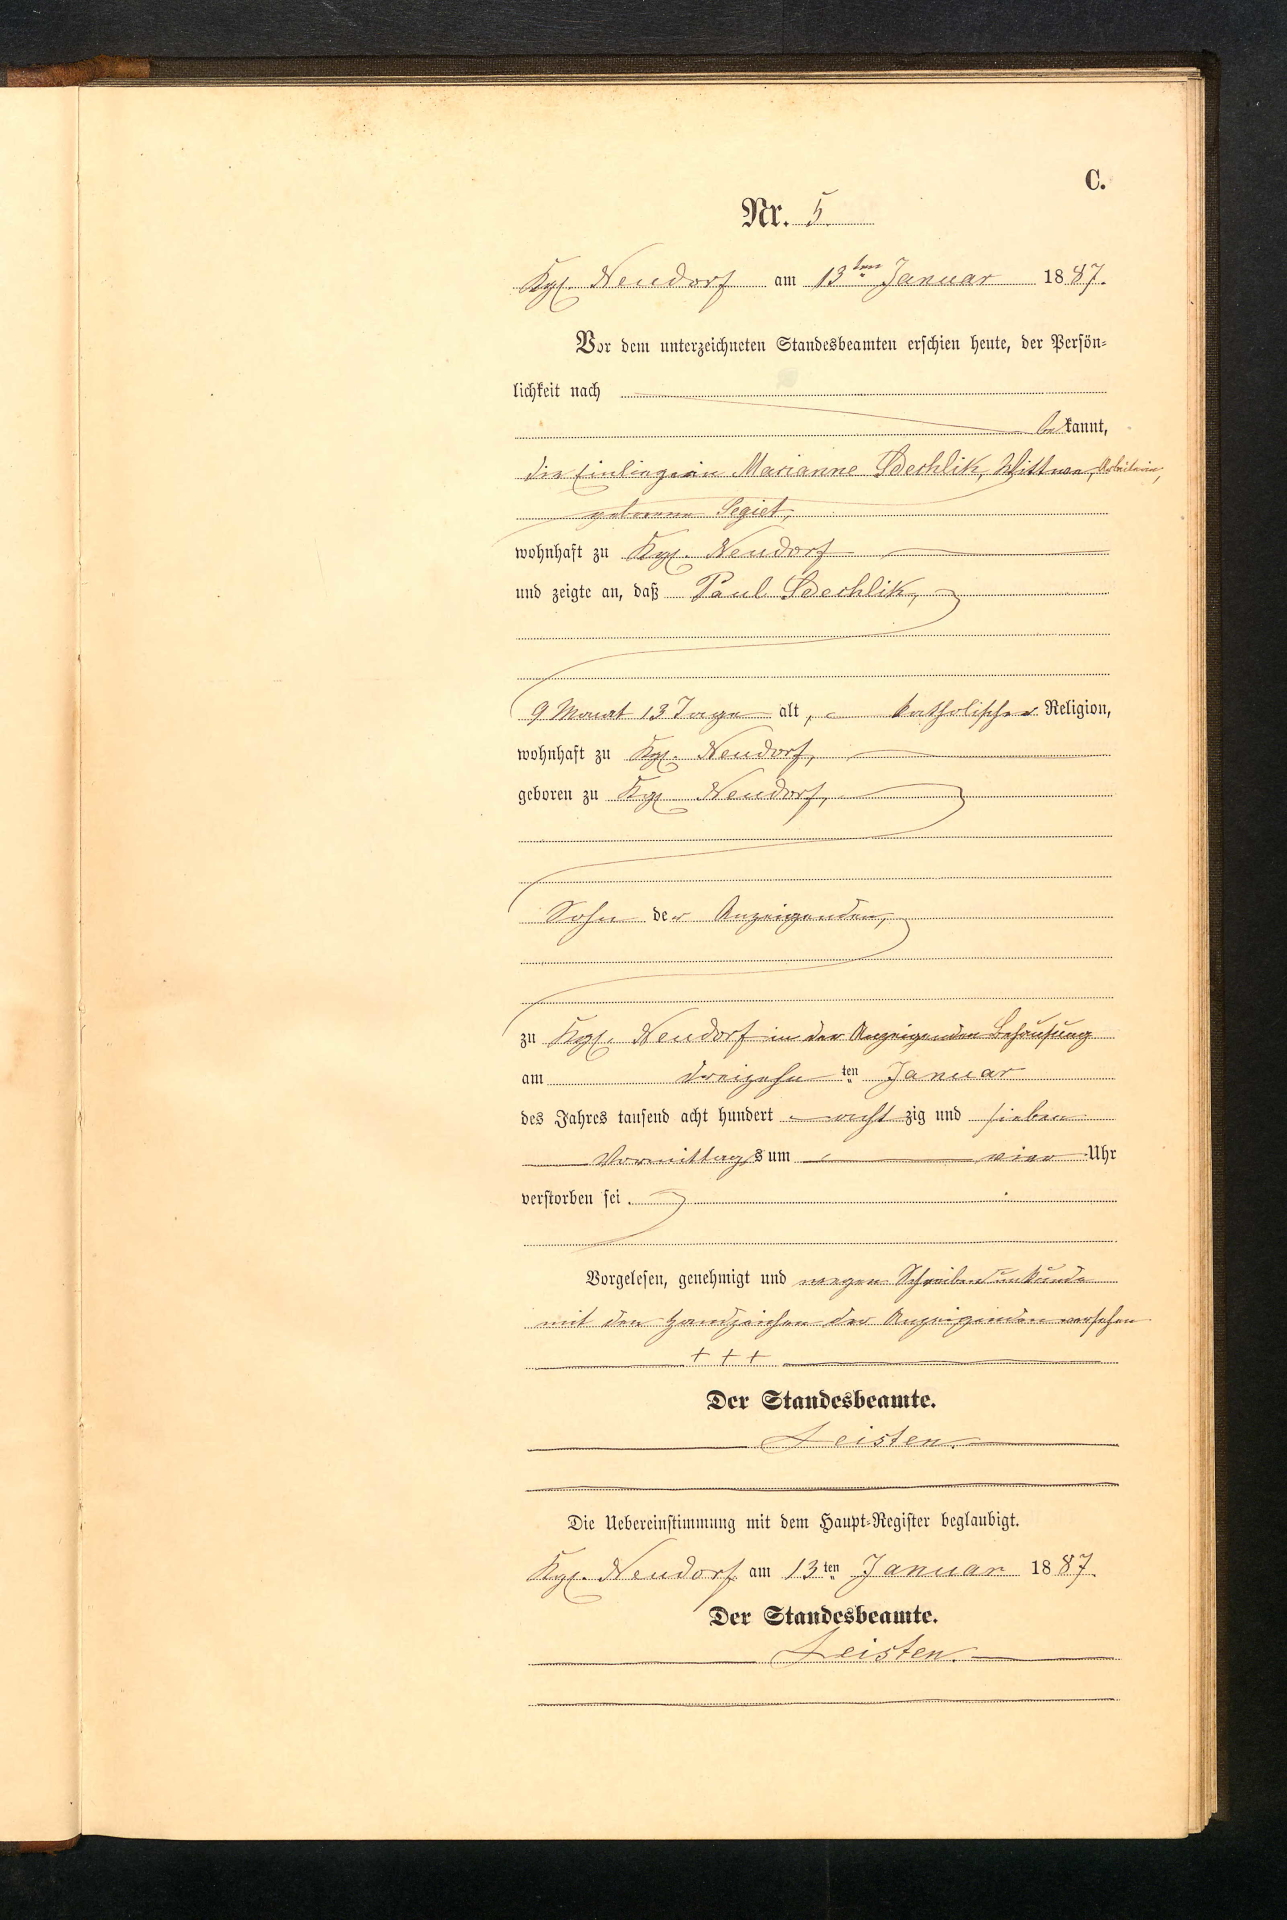 C.
Nr. 5.
Kgl. Neudorf am 13ten Januar 1887.
Vor dem unterzeichneten Standesbeamten erschien heute, der Persön-
lichkeit nach
bekannt,
die Einliegerin Marianne Dechlik, Wittwe, Arbeiterin,
geborene Segiet,
wohnhaft zu Kgl. Neudorf
und zeigte an, daß Paul Dechlik,
9 Monat 13 Tage alt, katholischer Religion,
wohnhaft zu Kgl. Neudorf,
geboren zu Kgl. Neudorf,
Sohn der Anzeigenden,
zu Kgl. Neudorf in der Anzeigenden Behausung
am dreizehn ten Januar
des Jahres tausend acht hundert acht zig und sieben
Vormittags um vier Uhr
verstorben sei.
Vorgelesen, genehmigt und wegen Schreibensunkunde
mit den Handzeichen der Anzeigenden versehen
+ + +
Der Standesbeamte.
Leisten.
Die Uebereinstimmung mit dem Haupt-Register beglaubigt.
Kgl. Neudorf am 13ten Januar 1887.
Der Standesbeamte.
Leisten.